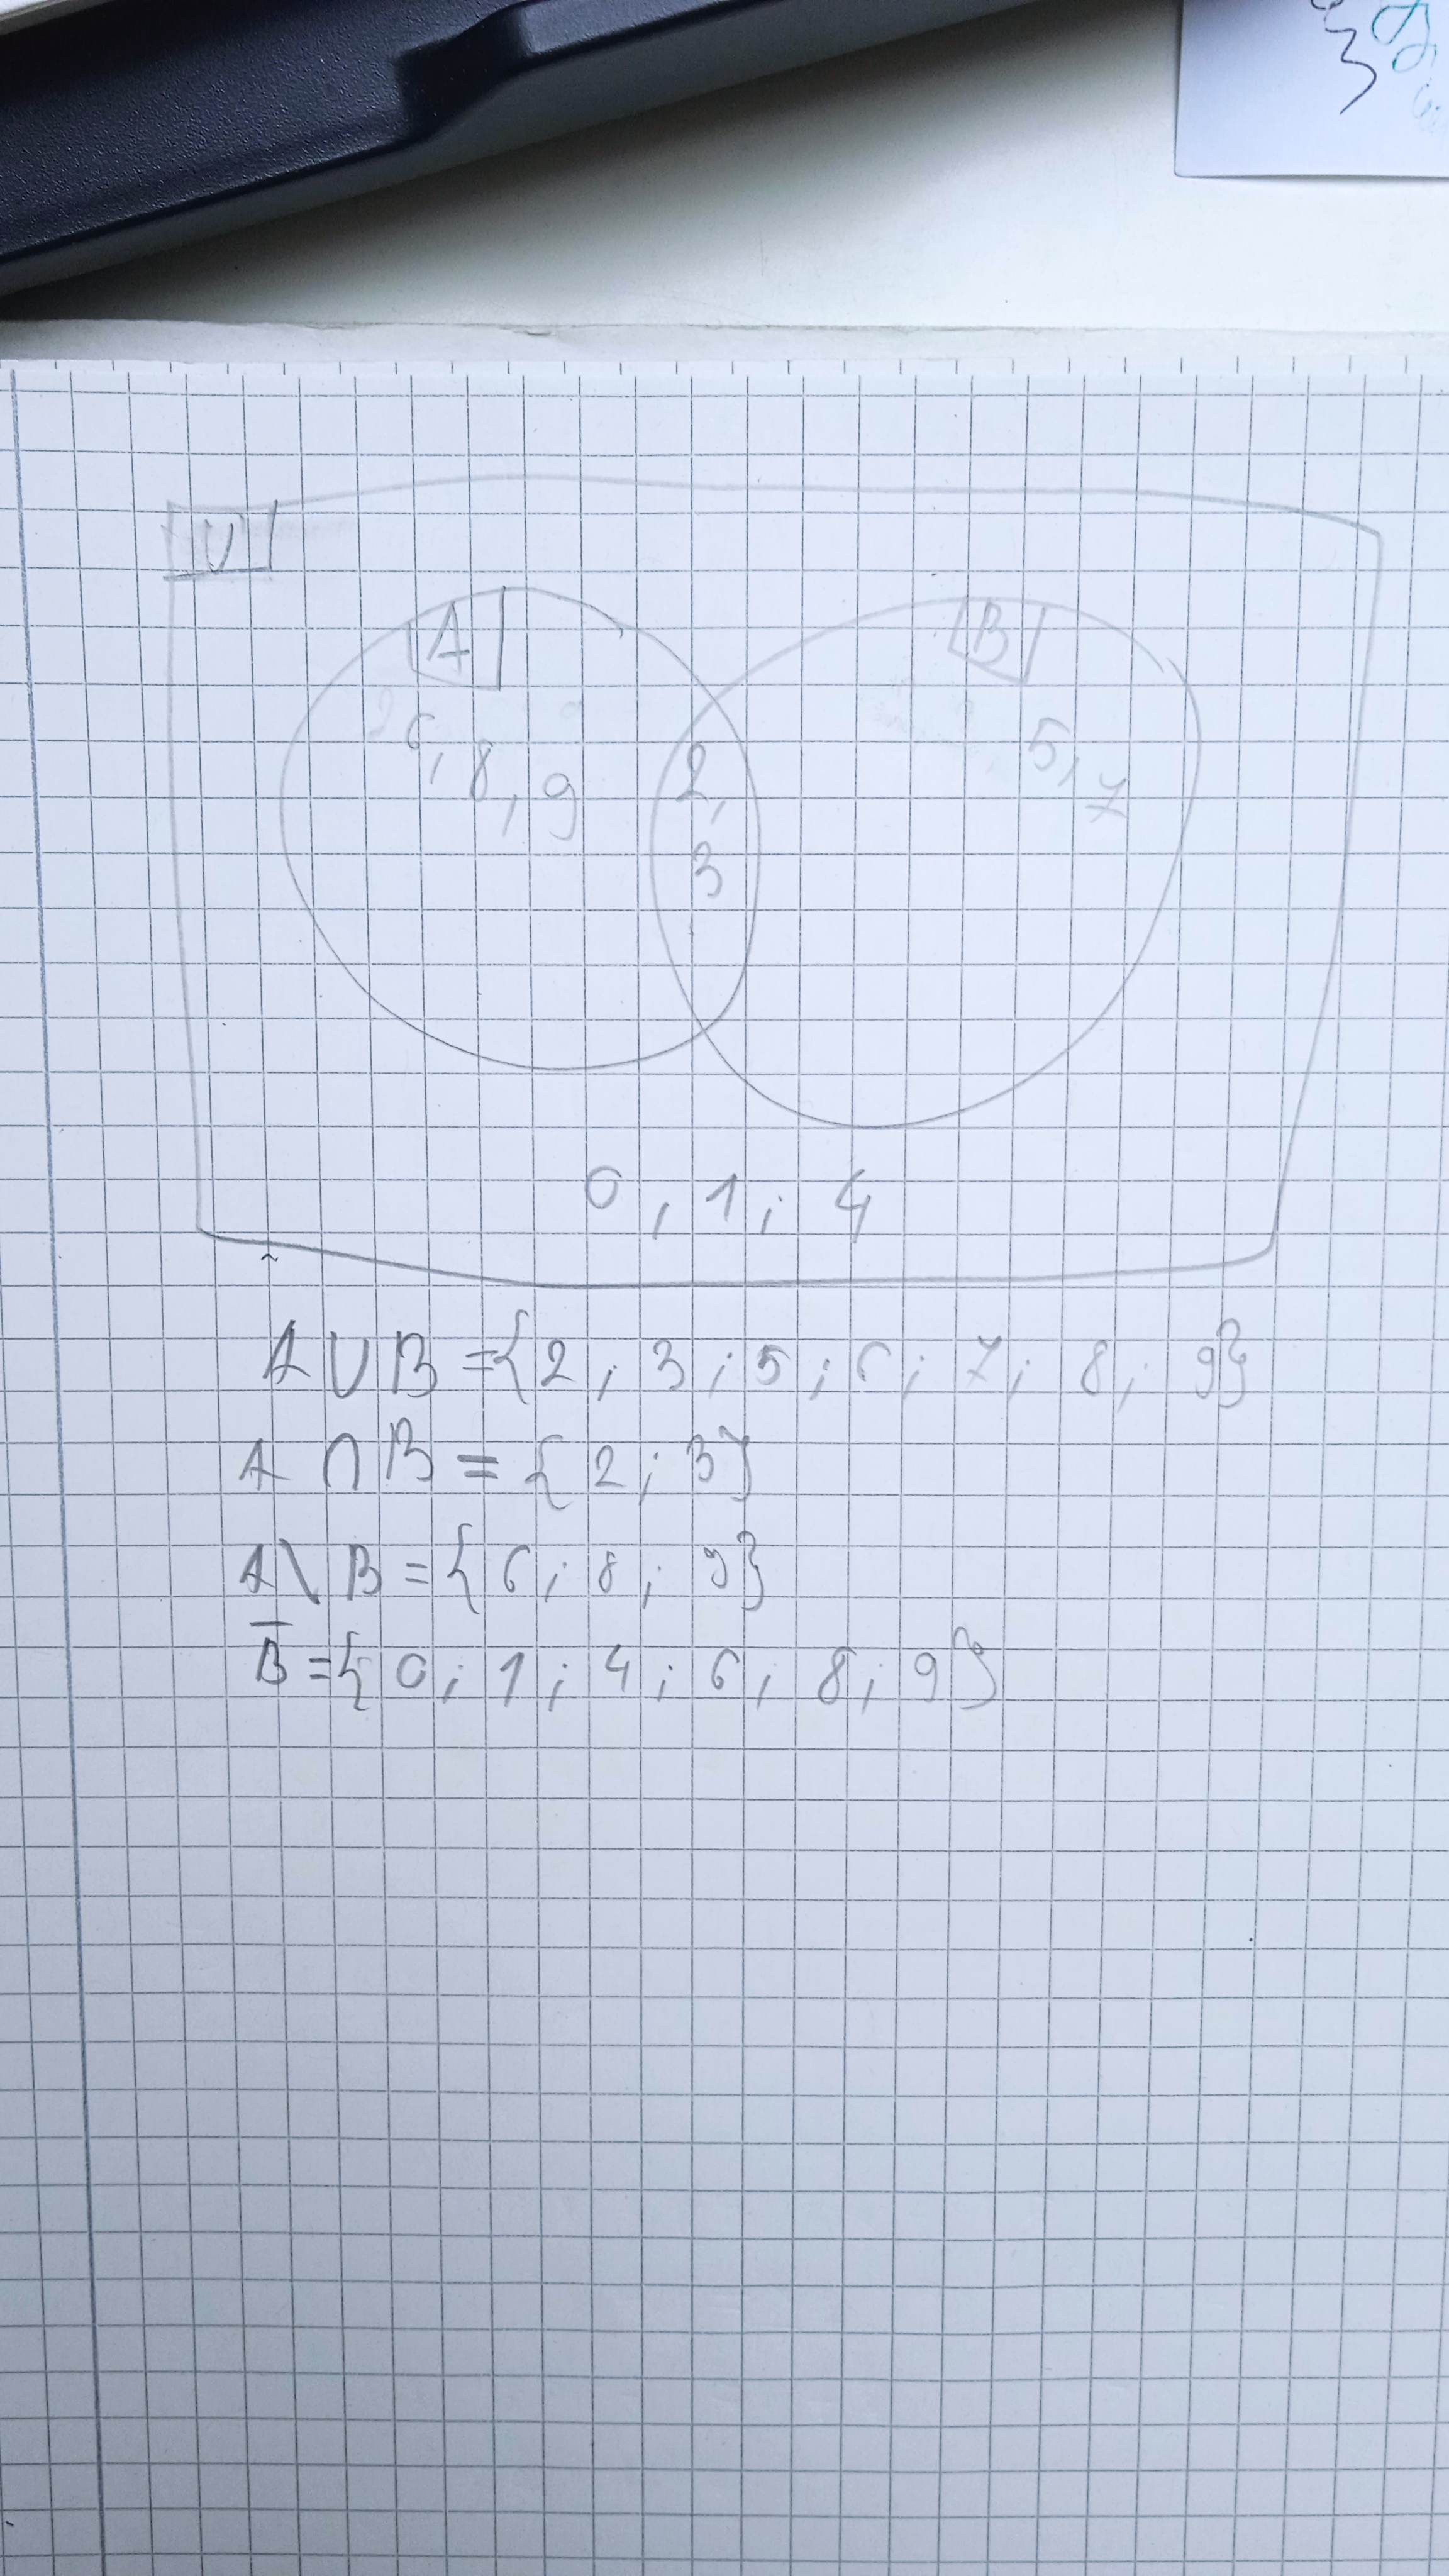 3
U
A
B
6, 8, 9
2,
3
5, 7
0, 1; 4
A ∪ B = {2; 3; 5; 6; 7; 8; 9}
A ∩ B = {2; 3}
A \ B = {6; 8; 9}
B̅ = {0; 1; 4; 6; 8; 9}